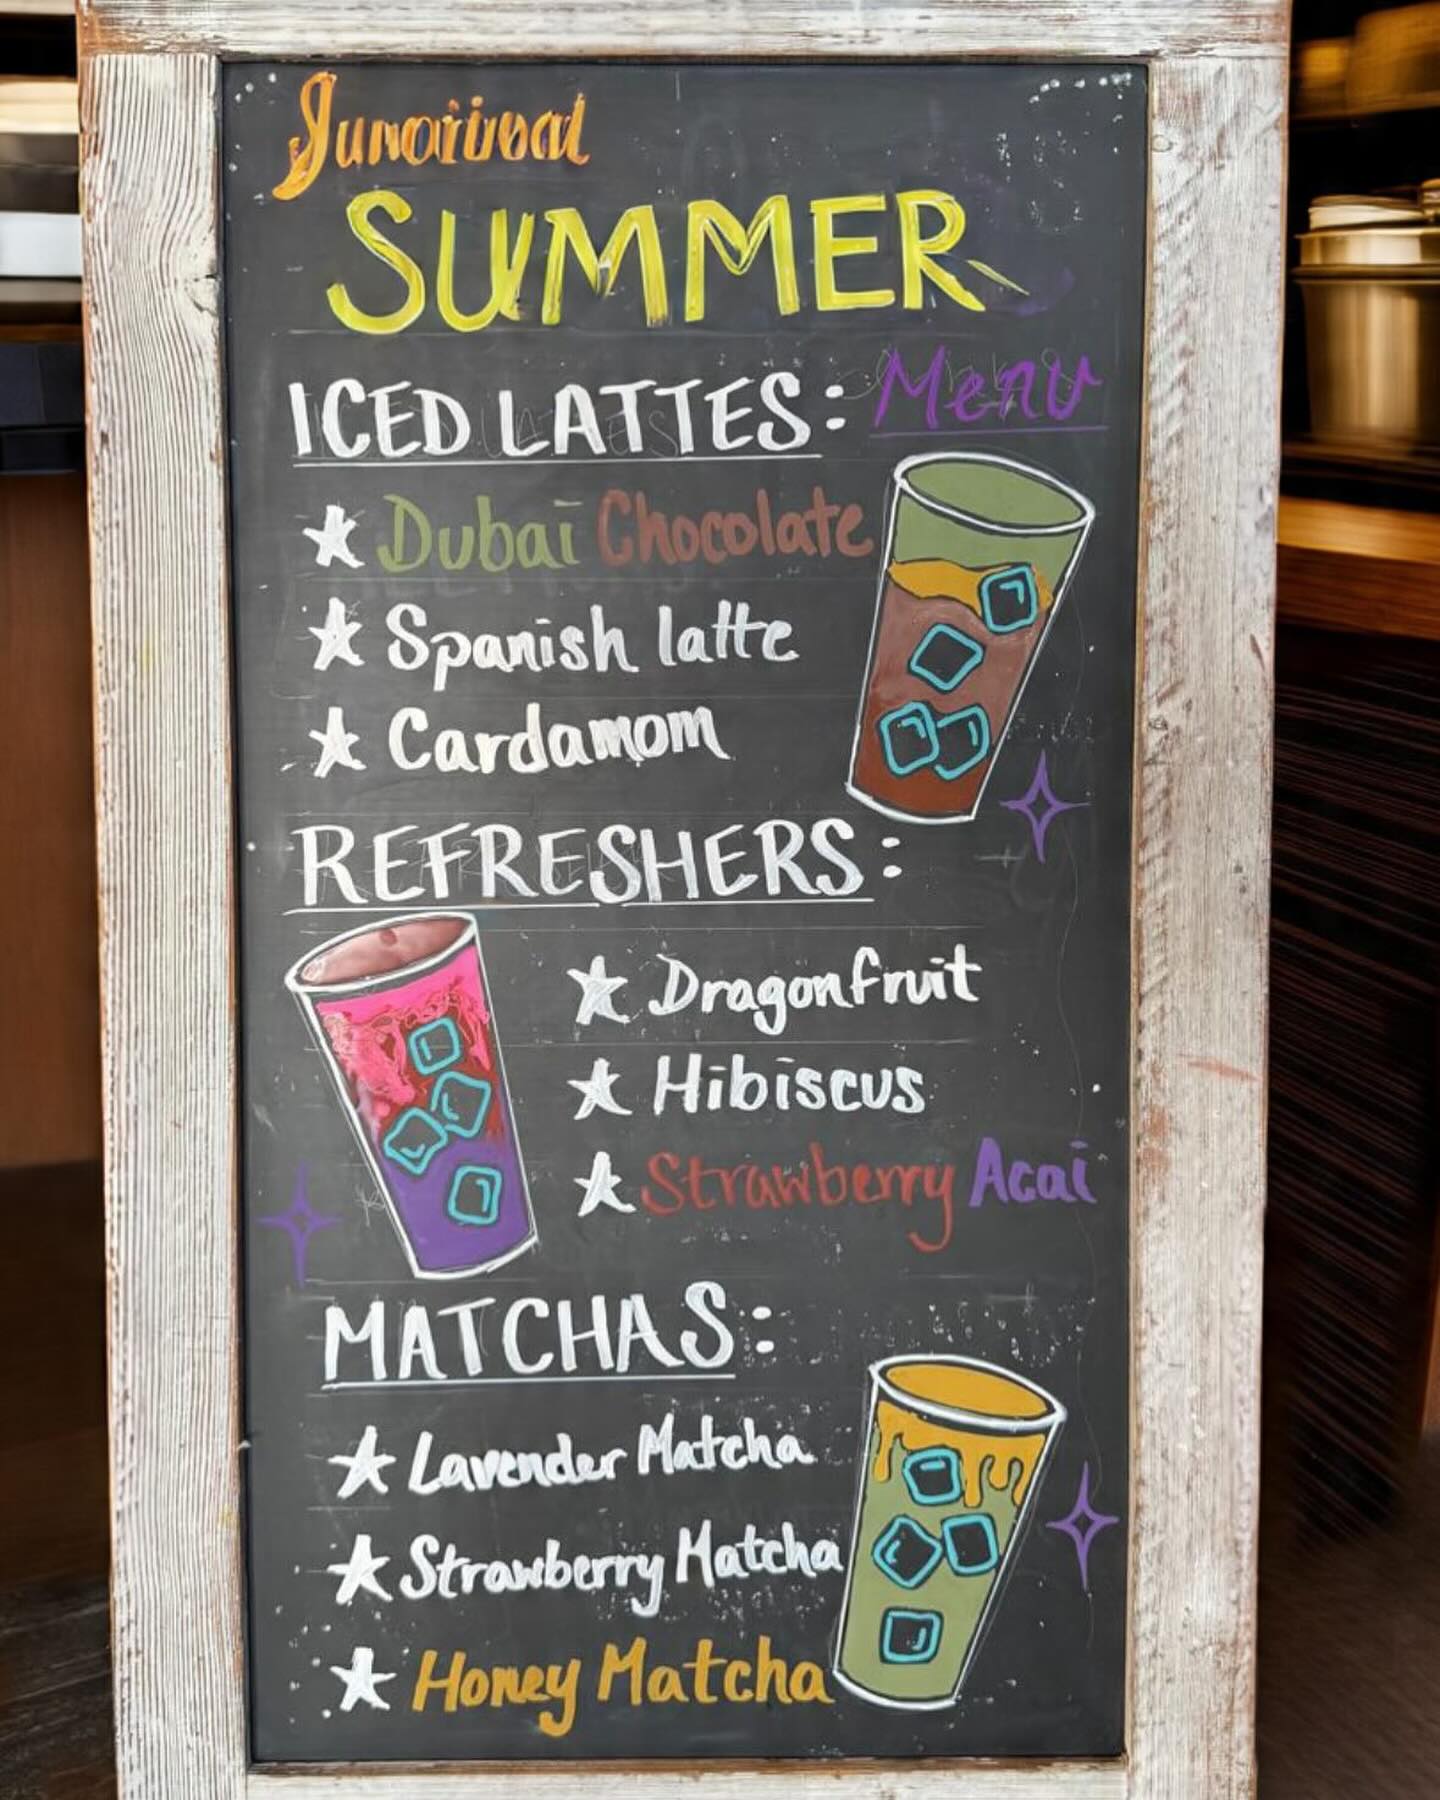 SUMMER
Menu
ICED LATTES:
Dubai Chocolate
Spanish latte
Cardamom
REFRESHERS:
Dragonfruit
Hibiscus
Strawberry Acai
MATCHAS:
Lavender Matcha
Strawberry Matcha
Honey Matcha